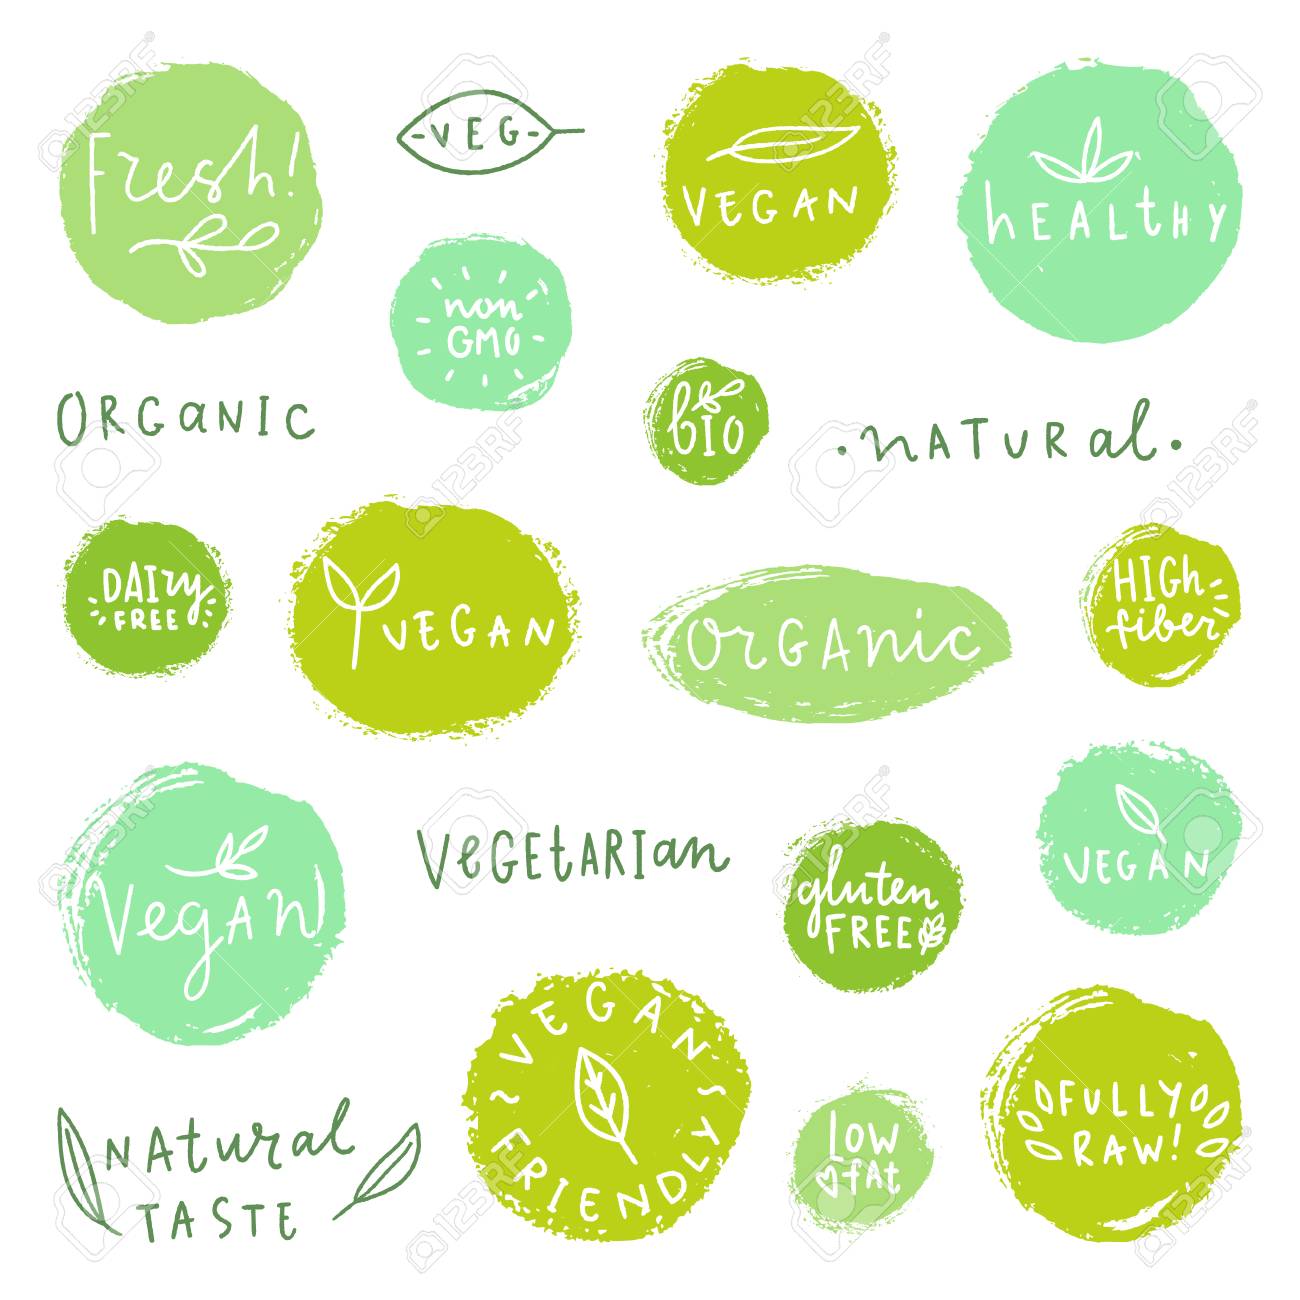 Fresh!
-VEG-
VEGAN
hEALtHY
non
GMO
ORGaNIC
bIO
•NATURal•
DAIry
FREE
VEGAN
OrGAnic
HIGh
fiber
VegAN
VeGEtARIan
gluten
FREE
VEGAN
VEGAN
FRIENDLY
NAtural
TASTE
lOW
fAt
FULLY
RAW!
123RF